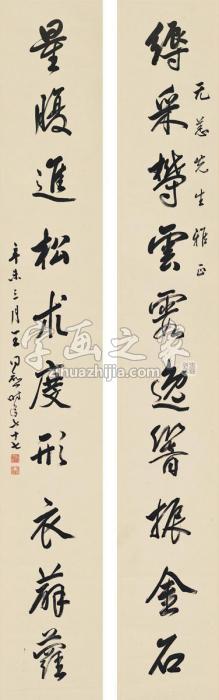 无恙先生雅正
縟采攀雲霞逸響振金石
量腹進松朮度形衣薜蘿
辛未三月王同愈時年七十七
字画之家
zihuazhijia.com